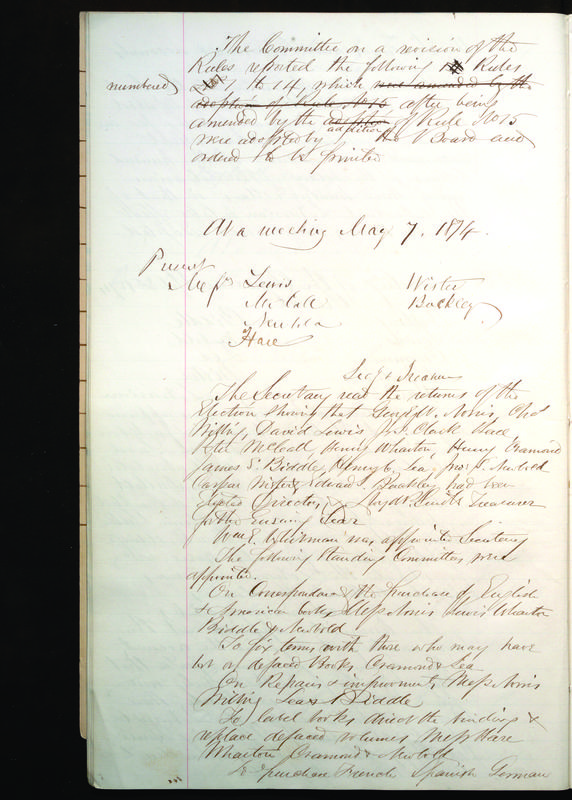 The Committee on a revision of the
Rules reported the following Rules
numbered 1 to 14, which was amended by the
adoption of Rule No 15 after being
amended by the adoption addition of Rule No 15
were adopted by the Board and
ordered to be printed
At a meeting May 7. 1874.
Present
Messrs Lewis Wister
McCall Buckley
Newbold
Hare
Secy & Treasurer
The Secretary read the returns of the
Election showing that George W. Norris, Chas
Willing, David Lewis J. I. Clark Hare
Peter McCall, Henry Wharton, Henry Cramond
James S. Biddle, Henry C. Lea, Jno. S. Newbold
Caspar Wister & Edward S. Buckley had been
Elected Directors & Lloyd P. Smith Treasurer
for the Ensuing Year
Wm E. Whitman was appointed Secretary
The following Standing Committees were
appointed.
On Correspondence & the purchase of English
& American books, Messrs Norris Lewis Wharton
Biddle & Newbold
To fix terms with those who may have
lost or defaced Books Cramond & Lea
On Repairs & improvements Messrs Norris
Willing Lea & Biddle
To label books direct the binding &
replace defaced volumes Messrs Hare
Wharton Cramond & Newbold
To purchase French Spanish German